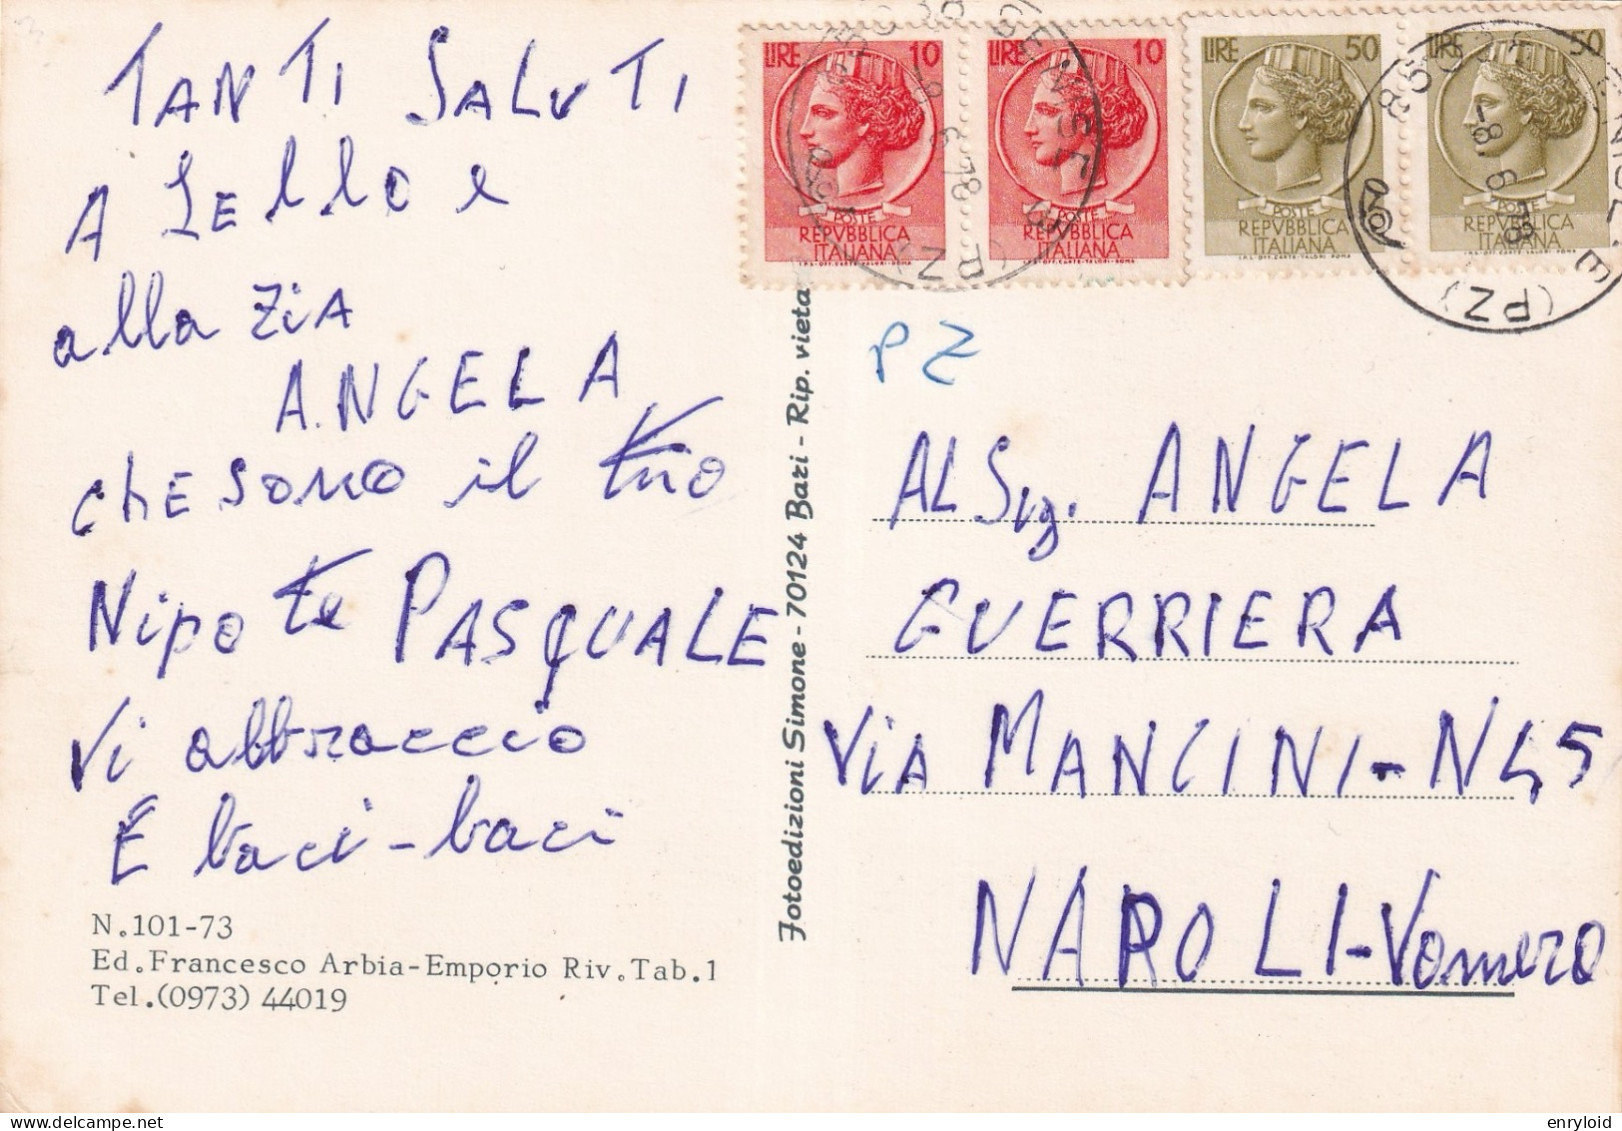 TANTI SALUTI
A LELLO e
alla ZIA
ANGELA
CHE SONO il tuo
Nipote PASQUALE
Vi abbraccio
E baci-baci
N.101-73
Ed.Francesco Arbia-Emporio Riv.Tab.1
Tel.(0973) 44019
Fotoedizioni Simone - 70124 Bari - Rip. vieta
LIRE 10
POSTE
REPVBBLICA
ITALIANA
I.P.S.-OFF.CARTE-VALORI-ROMA
LIRE 10
POSTE
REPVBBLICA
ITALIANA
LIRE 50
POSTE
REPVBBLICA
ITALIANA
I.P.S.-OFF.CARTE-VALORI-ROMA
LIRE 50
POSTE
REPVBBLICA
ITALIANA
6 78
(PZ)
85038
-8.6.78
(PZ)
PZ
AL Sig. ANGELA
GUERRIERA
VIA MANCINI-N45
NAPOLI-Vomero
enryloid